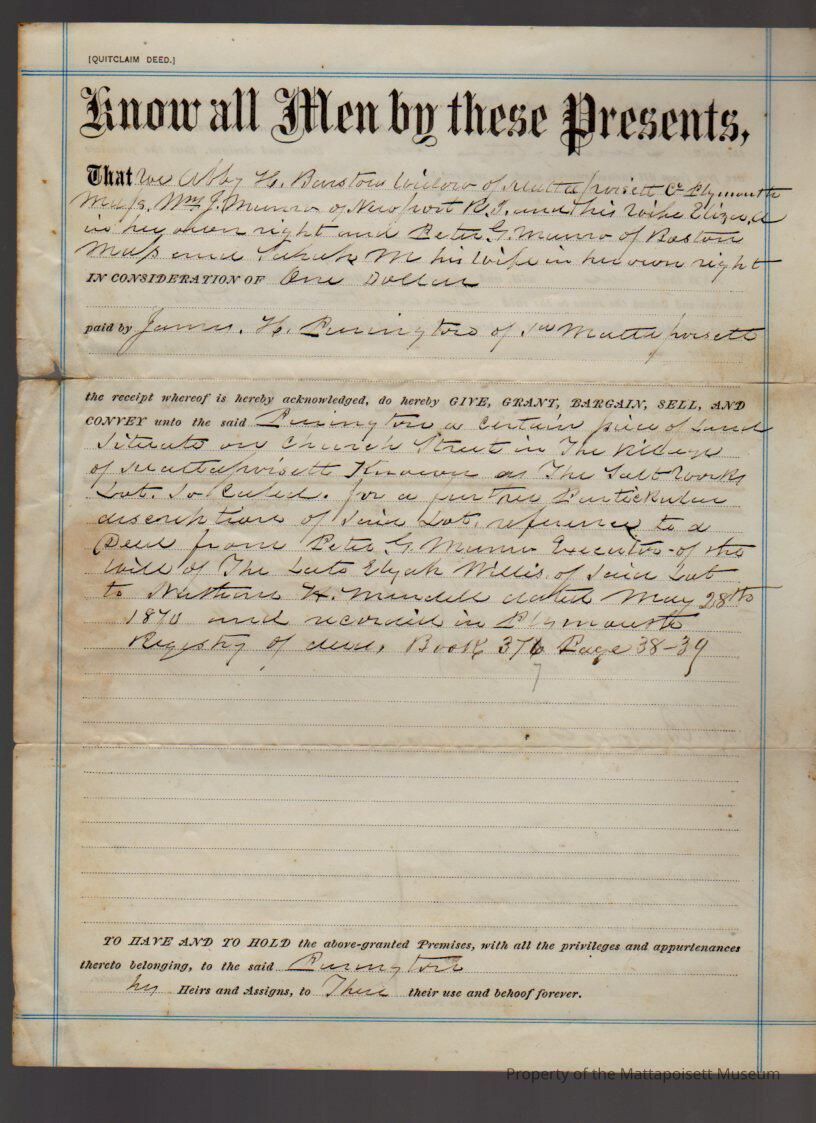 [QUITCLAIM DEED.]
Know all Men by these Presents,
That we Abby H. Barstow Widow of Mattapoisett Co Plymouth
Mass. Wm J. Munro of Newport R.I. and his wife Eliza A
in her own right and Peter G. Munro of Boston
Mass and Sarah M his Wife in her own right
IN CONSIDERATION OF One Dollar
paid by James. H. Purrington of sd Mattapoisett
the receipt whereof is hereby acknowledged, do hereby GIVE, GRANT, BARGAIN, SELL, AND
CONVEY unto the said Purrington a Certain piece of Land
Situate on Church Street in The Village
of Mattapoisett Known as The Salt Works
Lot. So Called. for a further Partickular
discription of Said Lot, reference to a
Deed from Peter G. Munro Executor of the
Will of The Late Elijah Willis, of Said Lot
to Nathan H. Mendell dated May 28th
1870 and recorded in Plymouth
Registry of deed, Book 376 Page 38-39
7
TO HAVE AND TO HOLD the above-granted Premises, with all the privileges and appurtenances
thereto belonging, to the said Purrington
his Heirs and Assigns, to Their their use and behoof forever.
Property of the Mattapoisett Museum